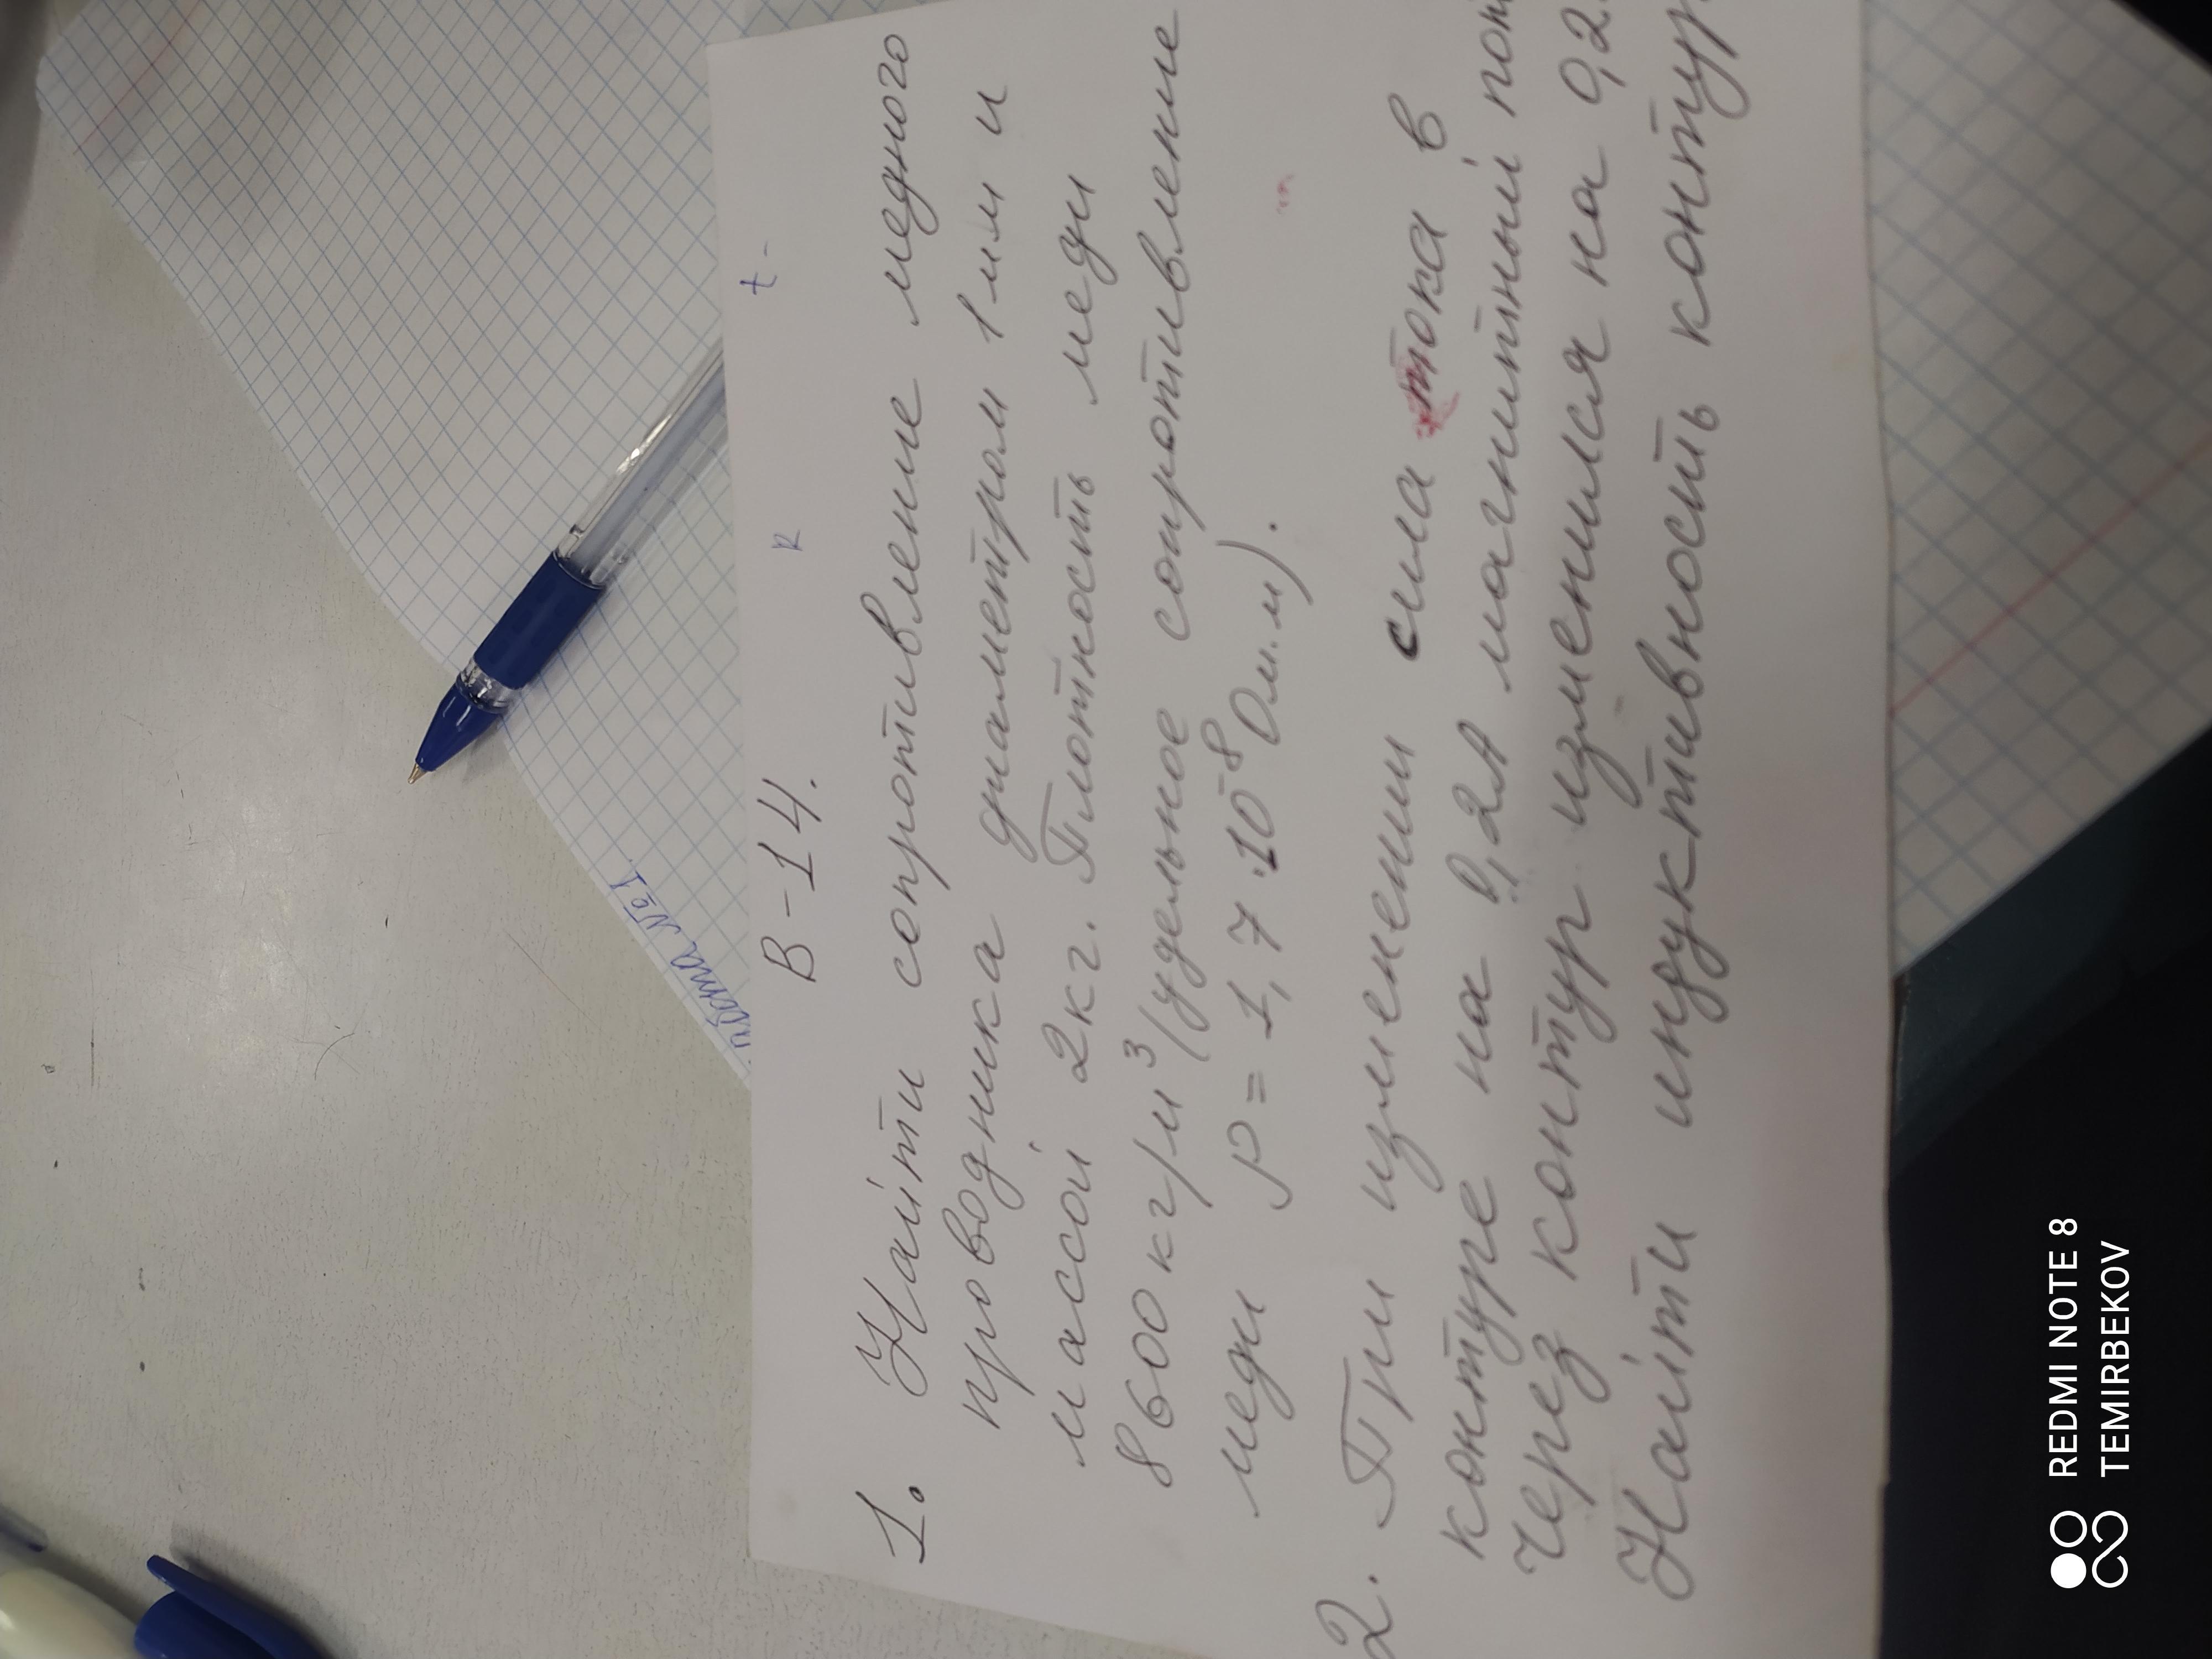 В-14.
1. Найти сопротивление медного
проводника диаметром 1мм и
массой 2кг. Плотность меди
8600кг/м³(удельное сопротивление
меди ρ=1,7·10⁻⁸Ом·м).
2. При изменении сила тока в
контуре на 0,2А магнитный
через контур изменился на 0,2
Найти индуктивность контур
№1
R
t -
REDMI NOTE 8
TEMIRBEKOV